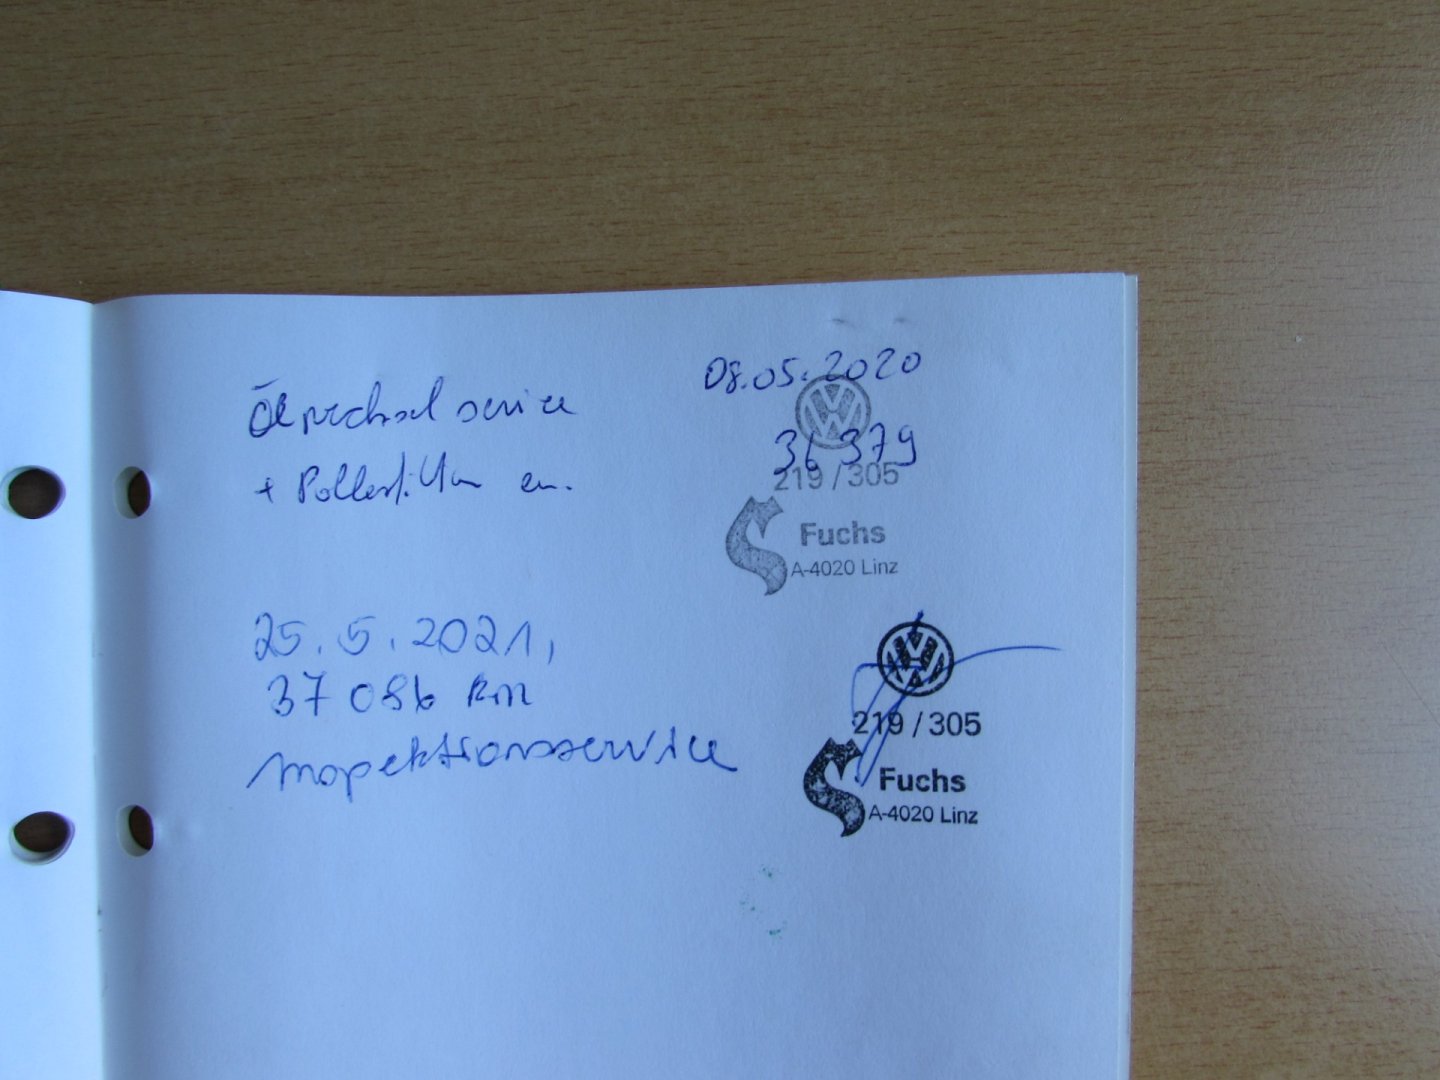 Ölwechsel service
08.05.2020
+ Pollenfilter en.
36 379
219 / 305
Fuchs
A-4020 Linz
25.5.2021,
37 086 km
Inspektionsservice
219 / 305
Fuchs
A-4020 Linz